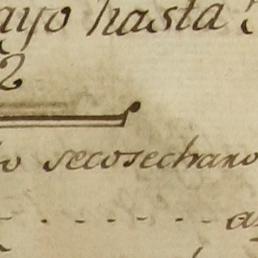 ayo hasta
2
to secosechano